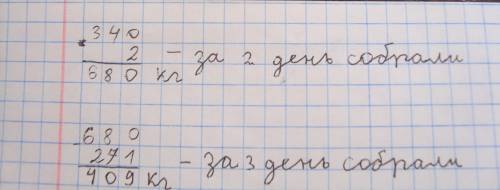 340
· 2 – за 2 день собрали
680 кг
-680
271 – за 3 день собрали
409 кг